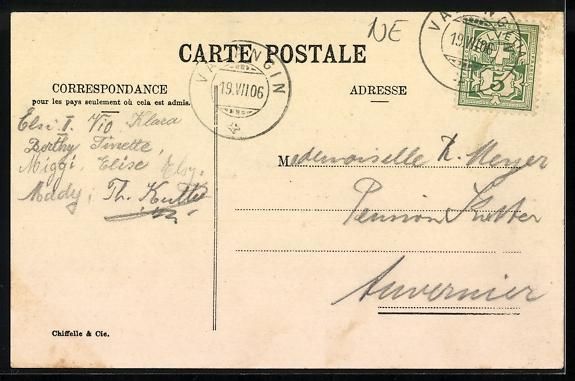 NE
CARTE POSTALE
VALANGIN
19.VII.06
VALANGIN
19.VII.06
HELVETIA
5
CORRESPONDANCE
pour les pays seulement où cela est admis.
ADRESSE
Elsi I. Klara
Berthy Finette,
Miggi, Elise Elsy.
Maddy, Th. Kutter
Mademoiselle R. Meyer
Pension Kutter
Auvernier
Chiffelle & Cie.